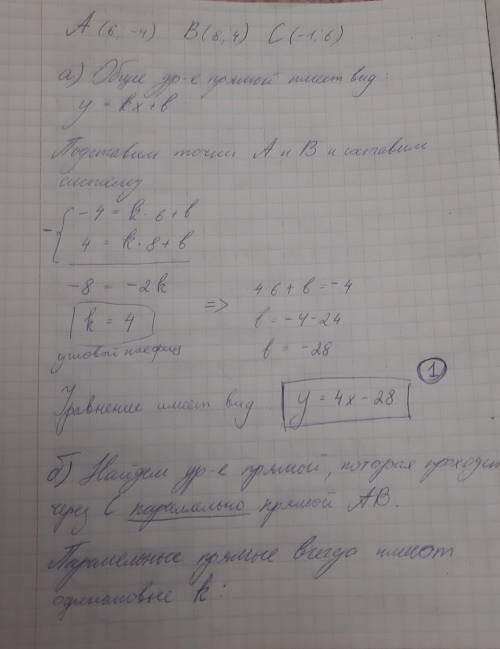 A (6, -4) B (8, 4) C (-1, 6)
а) Общее ур-е прямой имеет вид:
y = kx + b
Подставим точки A и B и составим
систему
- { -4 = k · 6 + b
4 = k · 8 + b
-8 = -2k
k = 4
угловой коэфиц
=>
4·6 + b = -4
b = -4 - 24
b = -28
1
Уравнение имеет вид y = 4x - 28
б) Найдем ур-е прямой, которая проходит
через C параллельно прямой AB.
Параллельные прямые всегда имеют
одинаковые k: